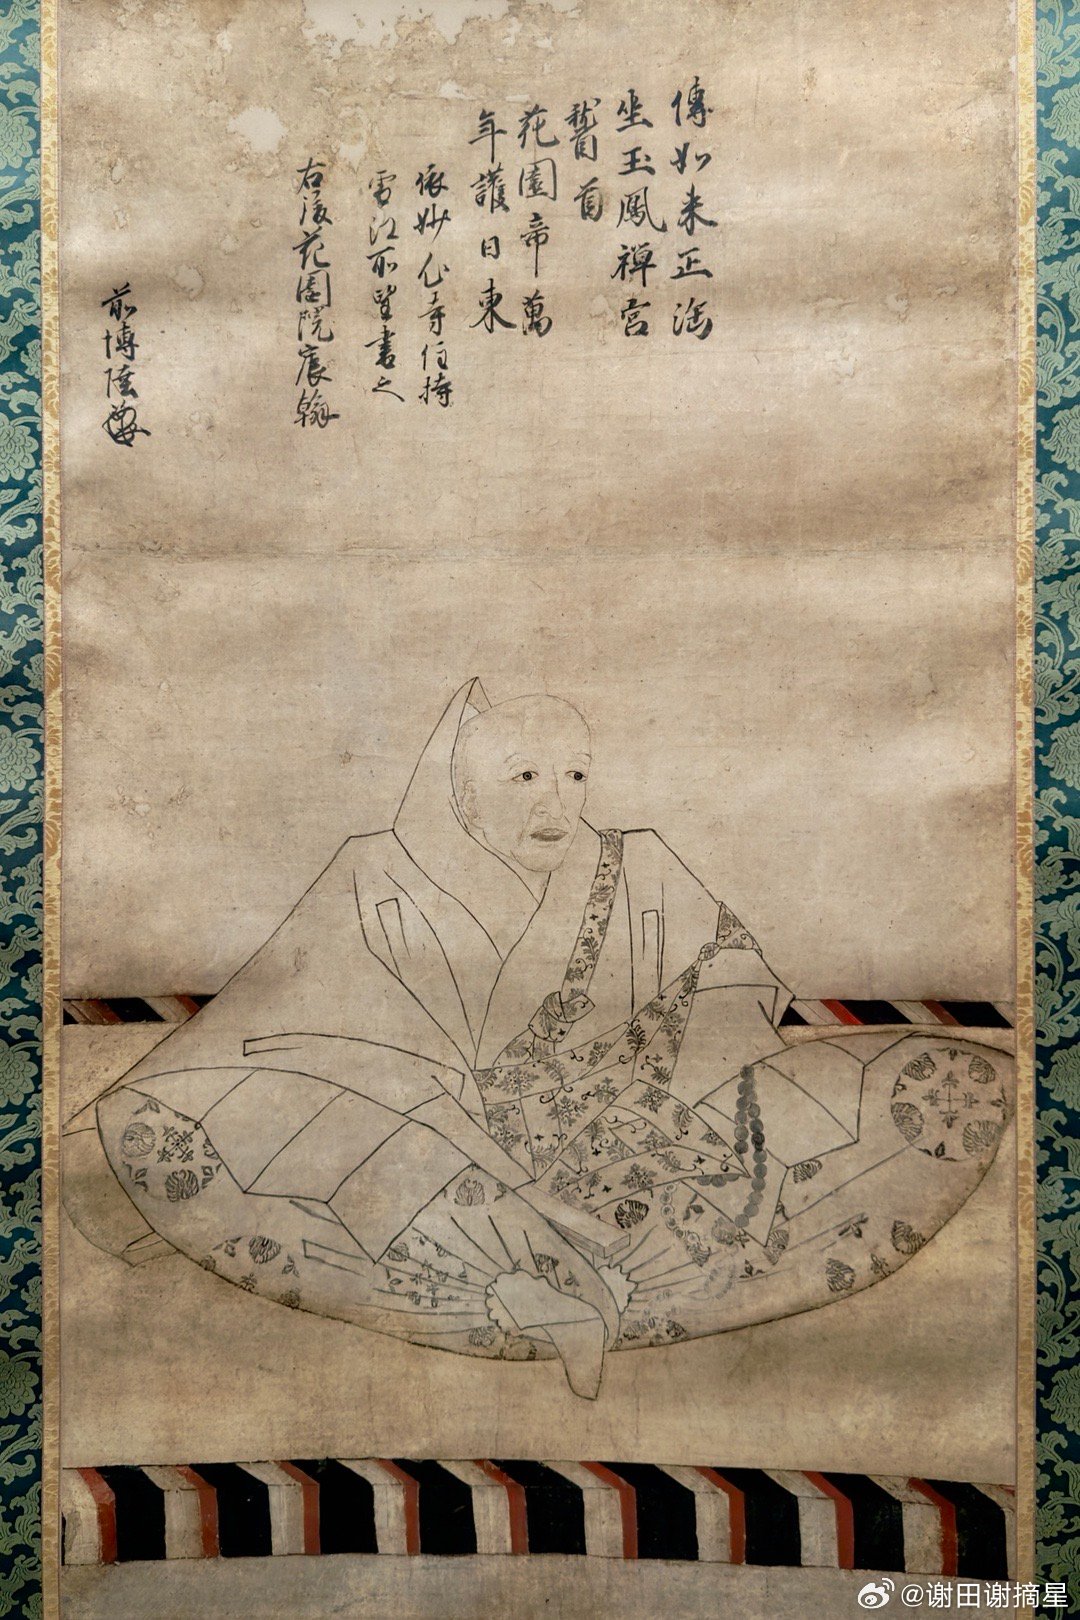 傳如来正法
坐玉鳳禅宮
稽首
花園帝萬
年護日東
依妙心寺住持
雪江所望書之
右後花園院宸翰
前博陸
@谢田谢摘星